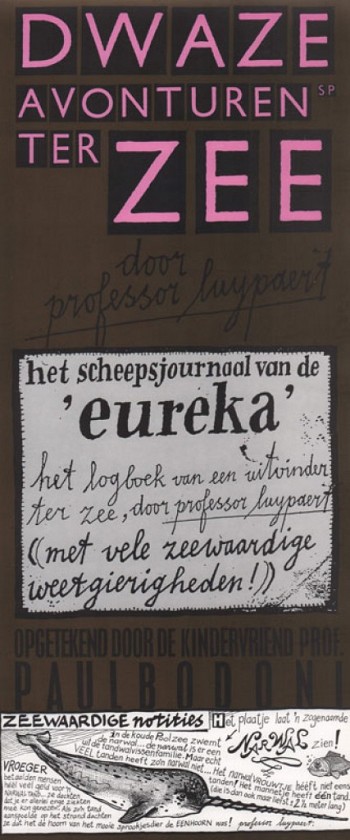 DWAZE
AVONTUREN SP
TER ZEE
door
professor luypaert
het scheepsjournaal van de
'eureka'
het logboek van een uitvinder
ter zee, door professor luypaert
((met vele zeewaardige
weetgierigheden!))
OPGETEKEND DOOR DE KINDERVRIEND PROF.
PAUL BODONI
ZEEWAARDIGE notities
Het plaatje laat 'n zogenaamde
NARWAL zien!
In de koude Poolzee zwemt
de narwal... de narwal is er een
uit de tandwalvissenfamilie. Maar echt
VEEL tanden heeft zo'n narwal niet...
Het narwalVROUWTJE heeft niet eens
tanden! Het mannetje heeft één tand.
(die is dan ook maar liefst 2½ meter lang)
VROEGER
betaalden mensen
heel veel geld voor 'n
NARWAL-tand... ze dachten
dat je er allerlei enge ziekten
mee kon genezen! Als zo'n tand
aanspoelde op het strand dachten
ze dat het de hoorn van het mooie sprookjesdier de EENHOORN was!
professor luypaert.